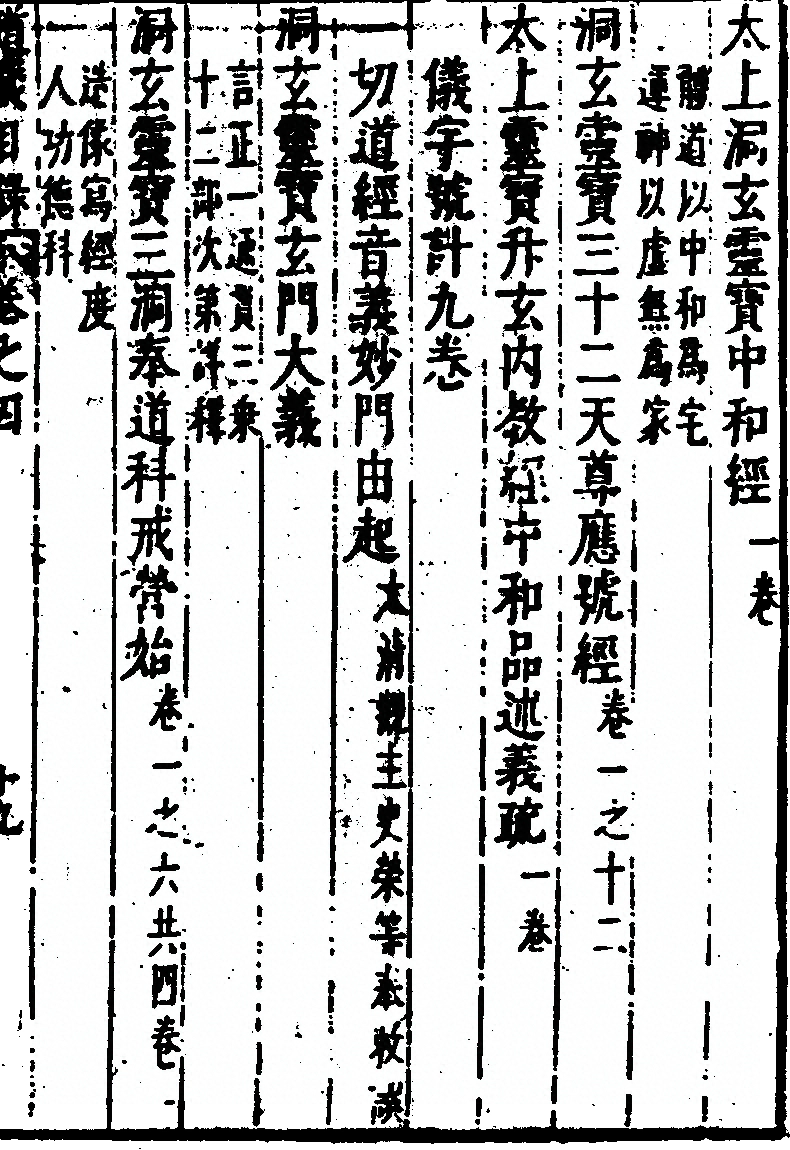 太上洞玄靈寶中和經 一卷
體道以中和爲宅
運神以虛無爲家
洞玄靈寶三十二天尊應號經 卷一之十二
太上靈寶升玄內教經中和品述義疏 一卷
儀字號計九卷
一切道經音義妙門由起 太清觀主史榮等奉敕
洞玄靈寶玄門大義
言正一通貫三乗
十二部次第詳釋
洞玄靈寶三洞奉道科戒營始 卷一之六共四卷
造像寫經度
人功德科
道藏目錄 卷之四 十九